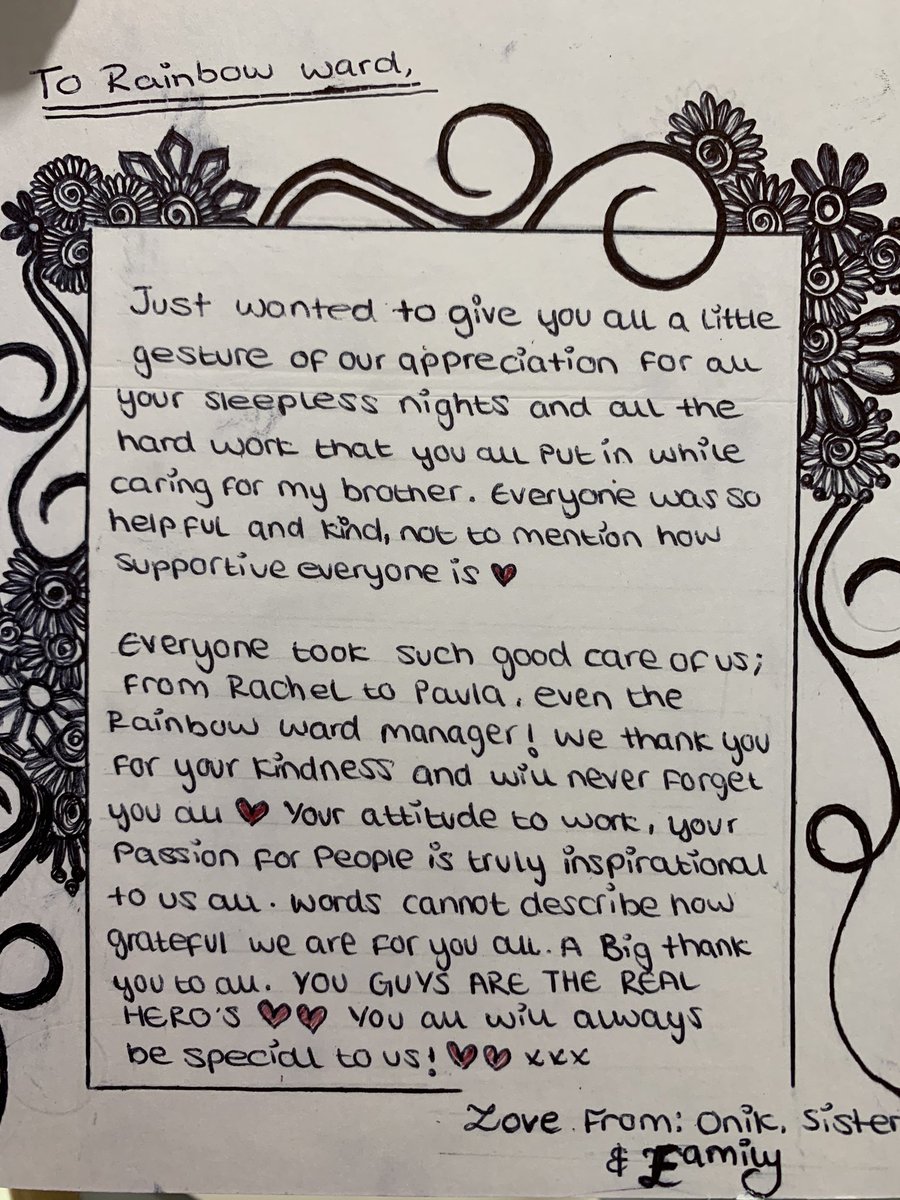 To Rainbow ward,
Just wanted to give you all a little
gesture of our appreciation for all
your sleepless nights and all the
hard work that you all put in while
caring for my brother. Everyone was so
helpful and kind, not to mention how
supportive everyone is ♥
Everyone took such good care of us;
from Rachel to Paula, even the
Rainbow ward manager! We thank you
for your kindness and will never forget
you all ♥ Your attitude to work, your
passion for people is truly inspirational
to us all. Words cannot describe how
grateful we are for you all. A Big thank
you to all. YOU GUYS ARE THE REAL
HERO'S ♥♥ You all will always
be special to us! ♥♥ xxx
Love From: Onik, Sister
& Family